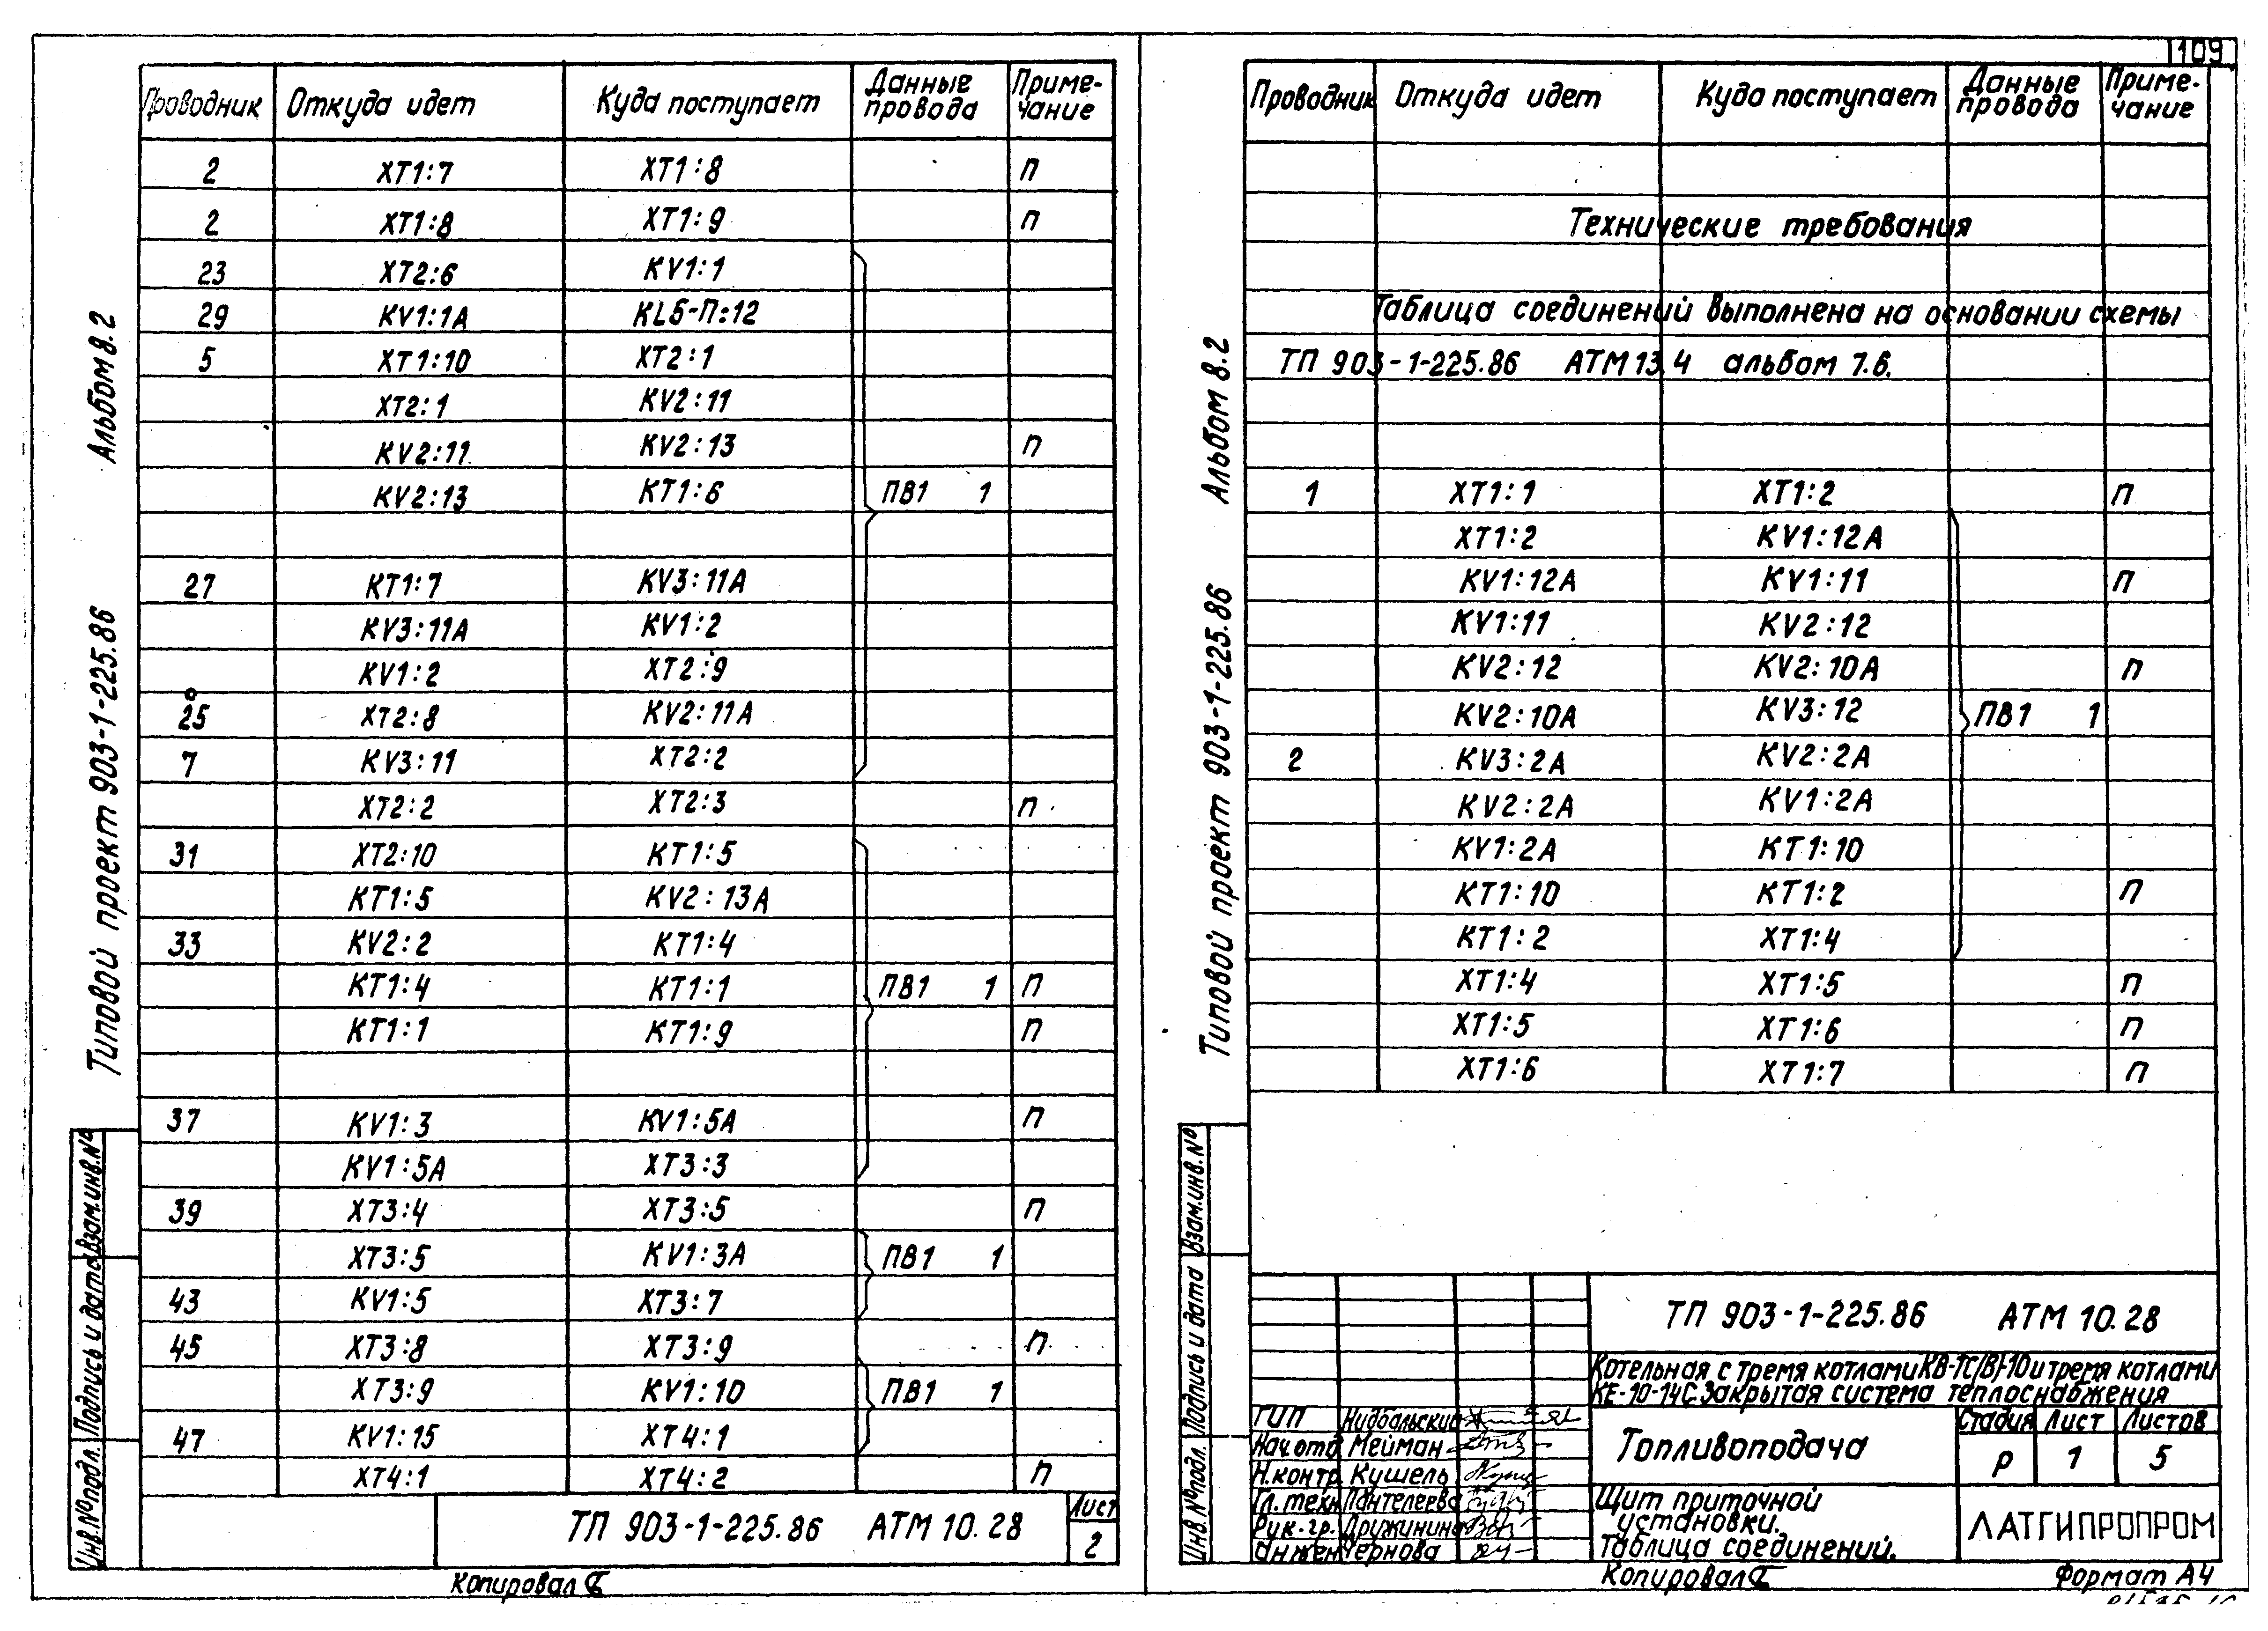 109
Проводник Откуда идет Куда поступает Данные провода Примечание
2 XT1:7 XT1:8 П
2 XT1:8 XT1:9 П
23 XT2:6 KV1:1
29 KV1:1A KL5-П:12
5 XT1:10 XT2:1
XT2:1 KV2:11
KV2:11 KV2:13 П
KV2:13 KT1:6 ПВ1 1
27 KT1:7 KV3:11A
KV3:11A KV1:2
KV1:2 XT2:9
25 XT2:8 KV2:11A
7 KV3:11 XT2:2
XT2:2 XT2:3 П
31 XT2:10 KT1:5
KT1:5 KV2:13A
33 KV2:2 KT1:4
KT1:4 KT1:1 ПВ1 1 П
KT1:1 KT1:9 П
37 KV1:3 KV1:5A П
KV1:5A XT3:3
39 XT3:4 XT3:5 П
XT3:5 KV1:3A ПВ1 1
43 KV1:5 XT3:7
45 XT3:8 XT3:9 П
XT3:9 KV1:10 ПВ1 1
47 KV1:15 XT4:1
XT4:1 XT4:2 П
ТП 903-1-225.86 АТМ 10.28
Лист
2
Копировал
Типовой проект 903-1-225.86 Альбом 8.2
Инв.№ подл. Подпись и дата Взам.инв.№
Проводник Откуда идет Куда поступает Данные провода Примечание
Технические требования
Таблица соединений выполнена на основании схемы
ТП 903-1-225.86 АТМ 13.4 альбом 7.6.
1 XT1:1 XT1:2 П
XT1:2 KV1:12A
KV1:12A KV1:11 П
KV1:11 KV2:12
KV2:12 KV2:10A П
KV2:10A KV3:12 ПВ1 1
2 KV3:2A KV2:2A
KV2:2A KV1:2A
KV1:2A KT1:10
KT1:10 KT1:2 П
KT1:2 XT1:4
XT1:4 XT1:5 П
XT1:5 XT1:6 П
XT1:6 XT1:7 П
Типовой проект 903-1-225.86 Альбом 8.2
Инв.№ подл. Подпись и дата Взам.инв.№
ТП 903-1-225.86 АТМ 10.28
Котельная с тремя котлами КВ-ТС(В)-10 и тремя котлами
КЕ-10-14С. Закрытая система теплоснабжения
ГИП Нидбальский
Нач.отд Мейман
Н.контр Кушель
Гл.техн Пантелеева
Рук.гр. Дружинина
Инжен Чернова
Топливоподача
Стадия Лист Листов
Р 1 5
Щит приточной
установки.
Таблица соединений.
ЛАТГИПРОПРОМ
Копировал
Формат А4